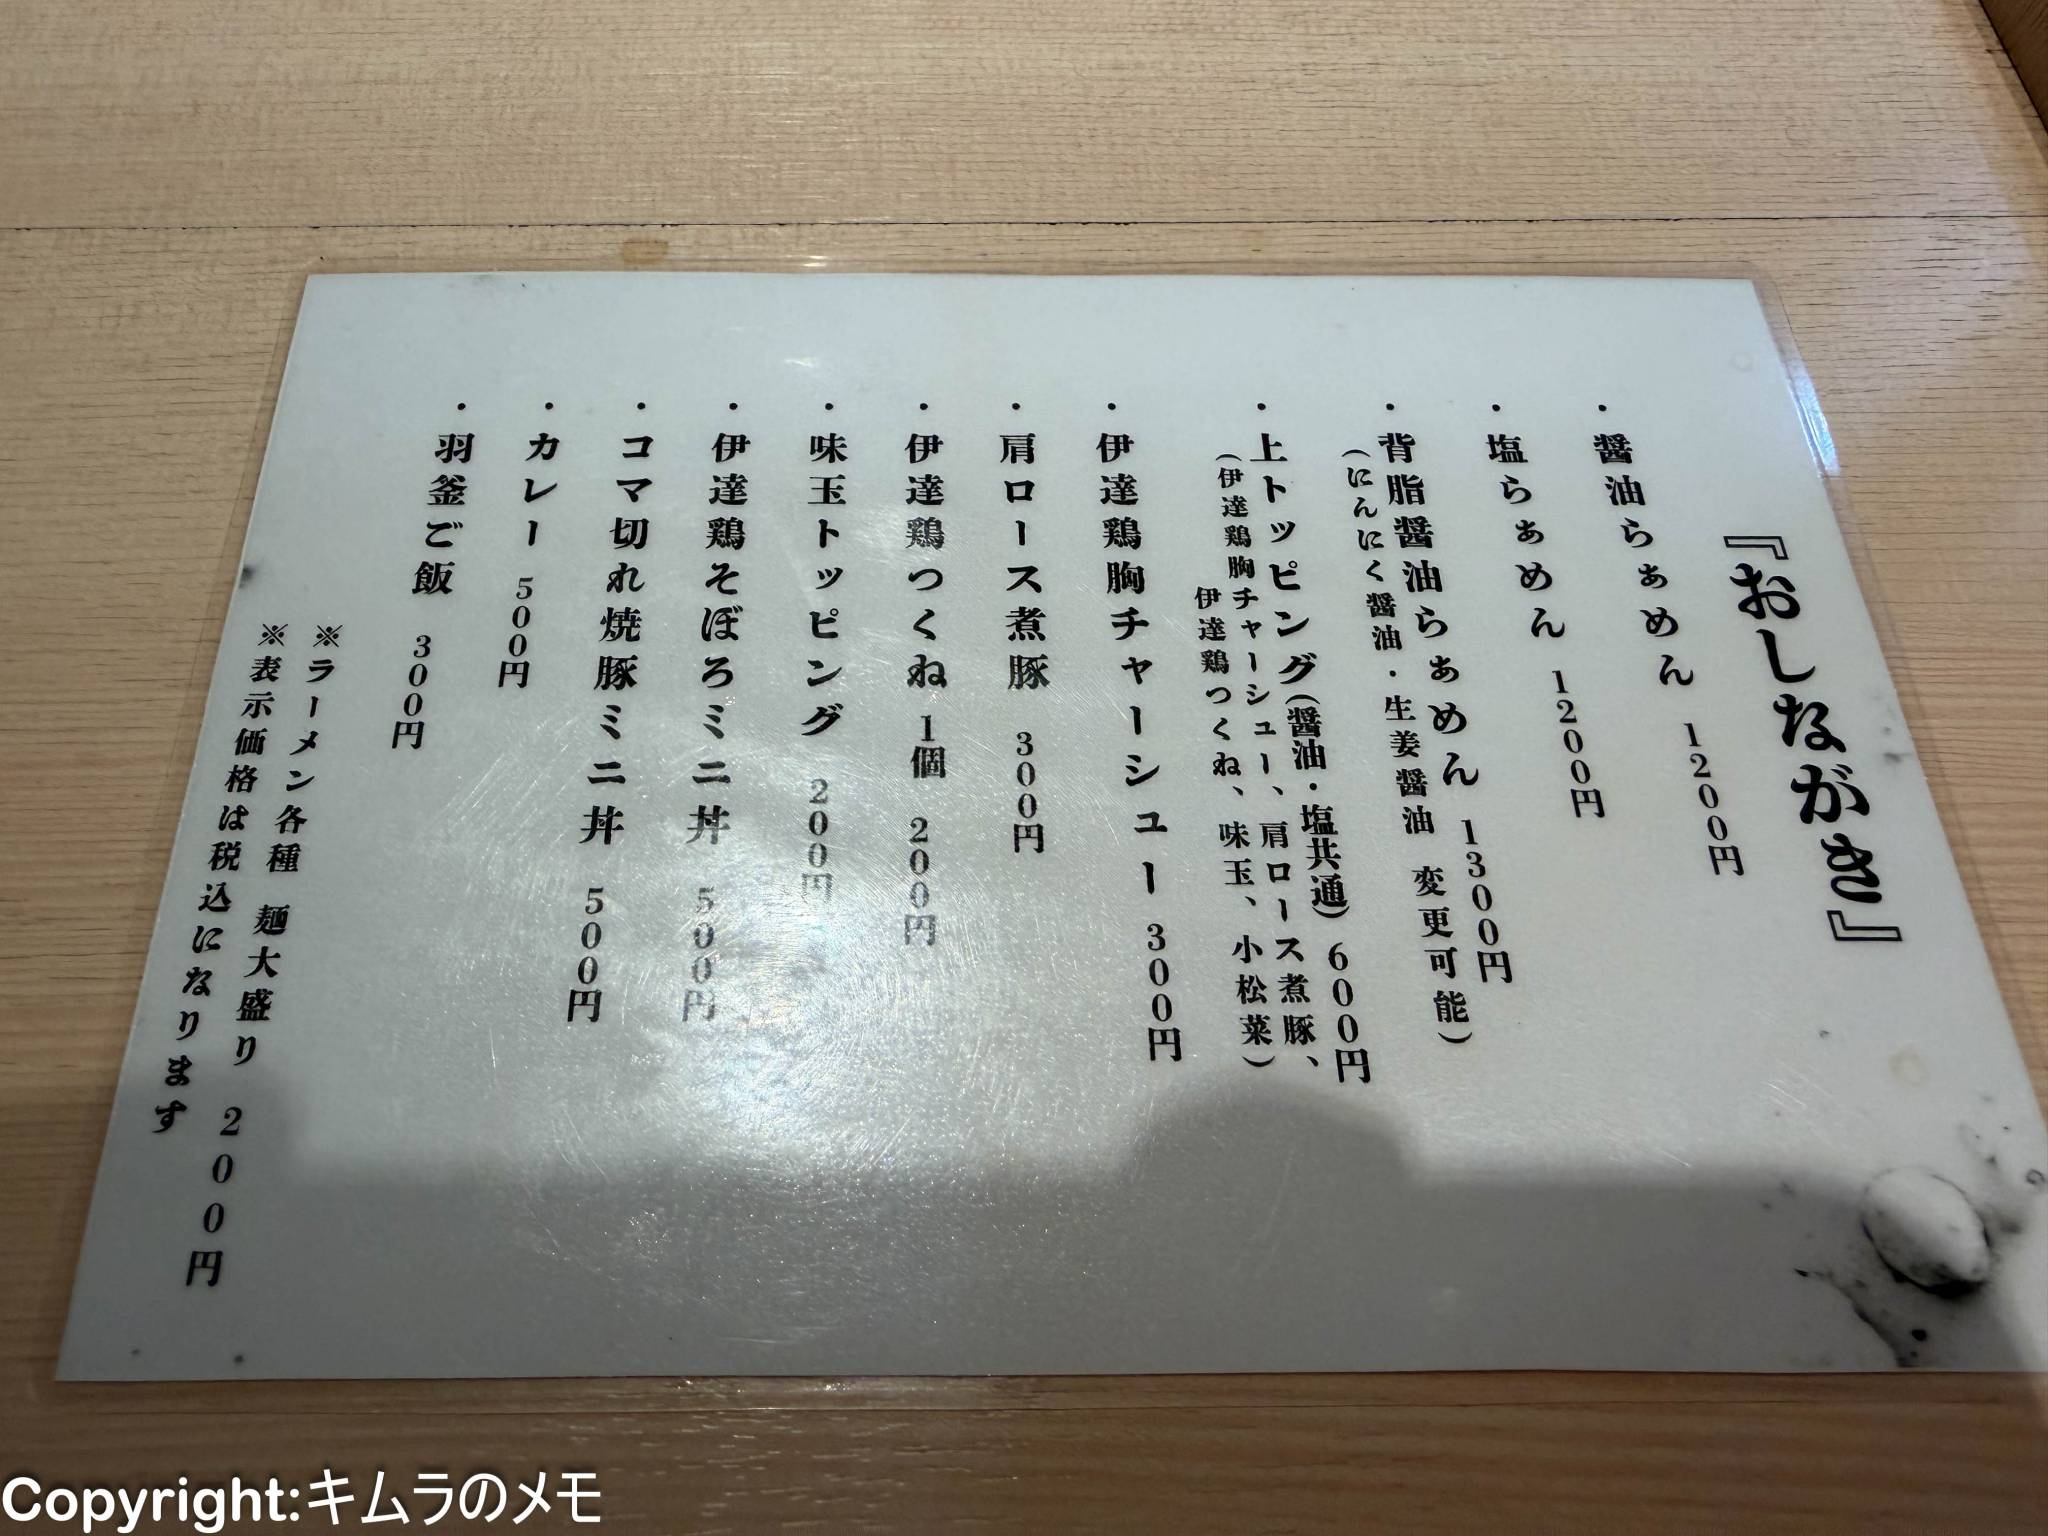 『おしながき』
・醤油らぁめん 1200円
・塩らぁめん 1200円
・背脂醤油らぁめん 1300円
(にんにく醤油・生姜醤油 変更可能)
・上トッピング(醤油・塩共通) 600円
(伊達鶏胸チャーシュー、肩ロース煮豚、
伊達鶏つくね、味玉、小松菜)
・伊達鶏胸チャーシュー 300円
・肩ロース煮豚 300円
・伊達鶏つくね 1個 200円
・味玉トッピング 200円
・伊達鶏そぼろミニ丼 500円
・コマ切れ焼豚ミニ丼 500円
・カレー 500円
・羽釜ご飯 300円
※ラーメン各種 麺大盛り 200円
※表示価格は税込になります
Copyright:キムラのメモ